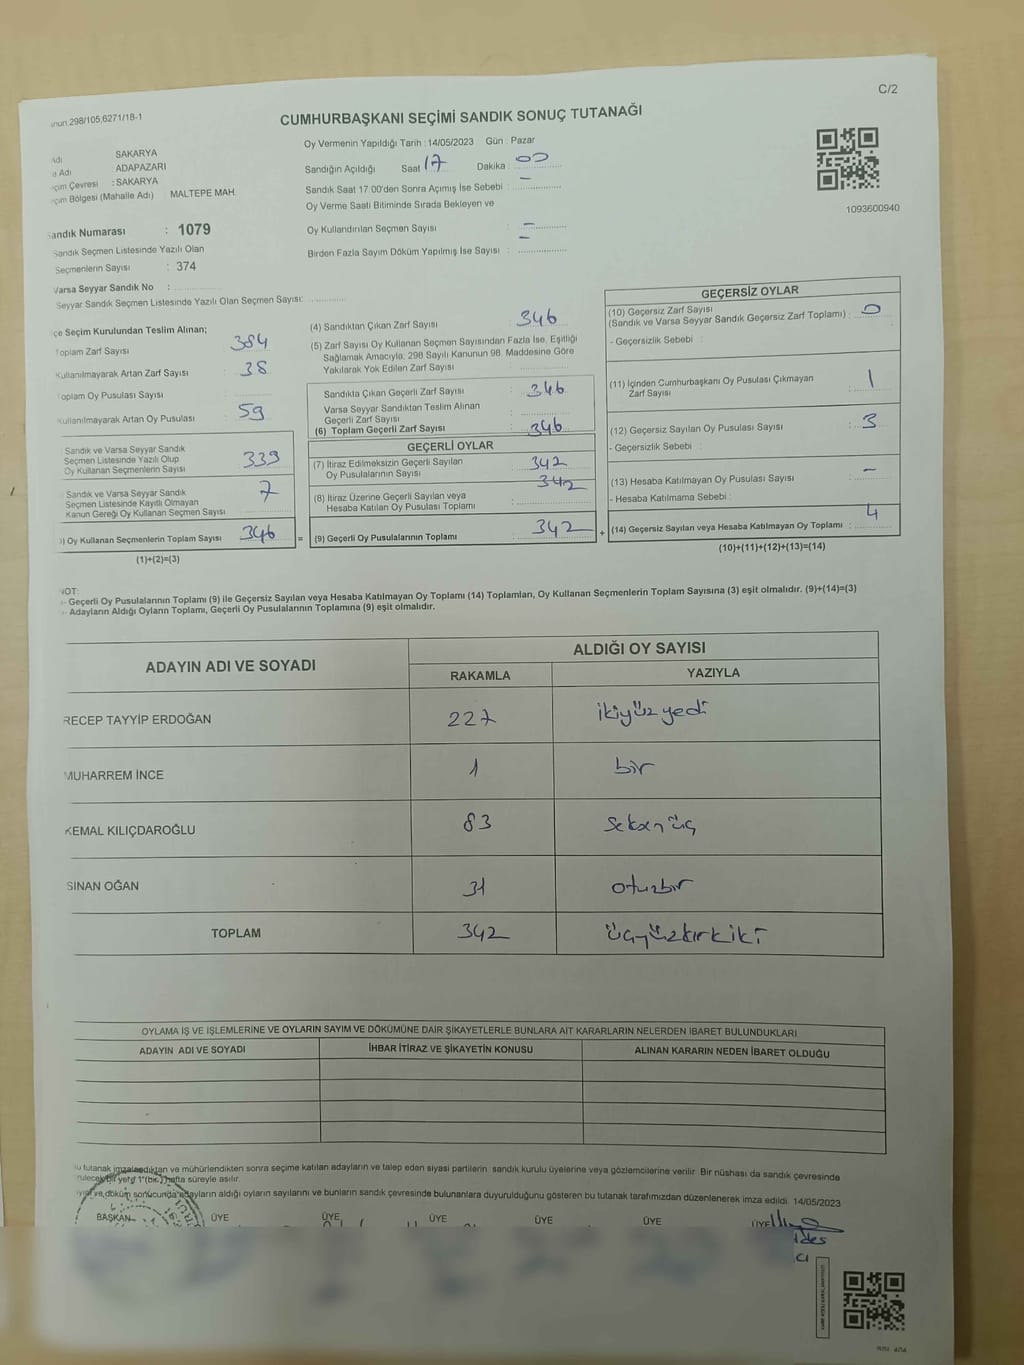 C/2
298/105;6271/18-1
CUMHURBAŞKANI SEÇİMİ SANDIK SONUÇ TUTANAĞI
Oy Vermenin Yapıldığı Tarih : 14/05/2023 Gün : Pazar
SAKARYA
Adı ADAPAZARI
Çevresi : SAKARYA
Bölgesi (Mahalle Adı) MALTEPE MAH.
Sandığın Açıldığı Saat 17 Dakika : 00
Sandık Saat 17.00'den Sonra Açımış İse Sebebi : –
Oy Verme Saati Bitiminde Sırada Bekleyen ve
Oy Kullandırılan Seçmen Sayısı : –
Birden Fazla Sayım Döküm Yapılmış İse Sayısı : –
1093600940
Sandık Numarası : 1079
Sandık Seçmen Listesinde Yazılı Olan
Seçmenlerin Sayısı : 374
Varsa Seyyar Sandık No :
Seyyar Sandık Seçmen Listesinde Yazılı Olan Seçmen Sayısı:
Seçim Kurulundan Teslim Alınan;
Toplam Zarf Sayısı : 384
Kullanılmayarak Artan Zarf Sayısı : 38
Toplam Oy Pusulası Sayısı :
Kullanılmayarak Artan Oy Pusulası : 59
Sandık ve Varsa Seyyar Sandık
Seçmen Listesinde Yazılı Olup
Oy Kullanan Seçmenlerin Sayısı 339
Sandık ve Varsa Seyyar Sandık
Seçmen Listesinde Kayıtlı Olmayan
Kanun Gereği Oy Kullanan Seçmen Sayısı 7
Oy Kullanan Seçmenlerin Toplam Sayısı 346 =
(1)+(2)=(3)
(4) Sandıktan Çıkan Zarf Sayısı : 346
(5) Zarf Sayısı Oy Kullanan Seçmen Sayısından Fazla İse, Eşitliği
Sağlamak Amacıyla, 298 Sayılı Kanunun 98. Maddesine Göre
Yakılarak Yok Edilen Zarf Sayısı :
Sandıkta Çıkan Geçerli Zarf Sayısı : 346
Varsa Seyyar Sandıktan Teslim Alınan
Geçerli Zarf Sayısı :
(6) Toplam Geçerli Zarf Sayısı : 346
GEÇERLİ OYLAR
(7) İtiraz Edilmeksizin Geçerli Sayılan
Oy Pusulalarının Sayısı : 342
342
(8) İtiraz Üzerine Geçerli Sayılan veya
Hesaba Katılan Oy Pusulası Toplamı :
(9) Geçerli Oy Pusulalarının Toplamı : 342 +
GEÇERSİZ OYLAR
(10) Geçersiz Zarf Sayısı
(Sandık ve Varsa Seyyar Sandık Geçersiz Zarf Toplamı) : 0
- Geçersizlik Sebebi :
(11) İçinden Cumhurbaşkanı Oy Pusulası Çıkmayan
Zarf Sayısı : 1
(12) Geçersiz Sayılan Oy Pusulası Sayısı : 3
- Geçersizlik Sebebi :
(13) Hesaba Katılmayan Oy Pusulası Sayısı : –
- Hesaba Katılmama Sebebi :
(14) Geçersiz Sayılan veya Hesaba Katılmayan Oy Toplamı : 4
(10)+(11)+(12)+(13)=(14)
NOT:
- Geçerli Oy Pusulalarının Toplamı (9) ile Geçersiz Sayılan veya Hesaba Katılmayan Oy Toplamı (14) Toplamları, Oy Kullanan Seçmenlerin Toplam Sayısına (3) eşit olmalıdır. (9)+(14)=(3)
- Adayların Aldığı Oyların Toplamı, Geçerli Oy Pusulalarının Toplamına (9) eşit olmalıdır.
ADAYIN ADI VE SOYADI ALDIĞI OY SAYISI
RAKAMLA YAZIYLA
RECEP TAYYİP ERDOĞAN 227 ikiyüz yedi
MUHARREM İNCE 1 bir
KEMAL KILIÇDAROĞLU 83 Seksen üç
SİNAN OĞAN 31 otuzbir
TOPLAM 342 üçyüzkırkiki
OYLAMA İŞ VE İŞLEMLERİNE VE OYLARIN SAYIM VE DÖKÜMÜNE DAİR ŞİKAYETLERLE BUNLARA AİT KARARLARIN NELERDEN İBARET BULUNDUKLARI
ADAYIN ADI VE SOYADI İHBAR İTİRAZ VE ŞİKAYETİN KONUSU ALINAN KARARIN NEDEN İBARET OLDUĞU
tutanak imzalandıktan ve mühürlendikten sonra seçime katılan adayların ve talep eden siyasi partilerin sandık kurulu üyelerine veya gözlemcilerine verilir. Bir nüshası da sandık çevresinde
bir yere 1 (bir) hafta süreyle asılır.
ve döküm sonucunda adayların aldığı oyların sayılarını ve bunların sandık çevresinde bulunanlara duyurulduğunu gösteren bu tutanak tarafımızdan düzenlenerek imza edildi. 14/05/2023
BAŞKAN ÜYE ÜYE ÜYE ÜYE ÜYE ÜYE